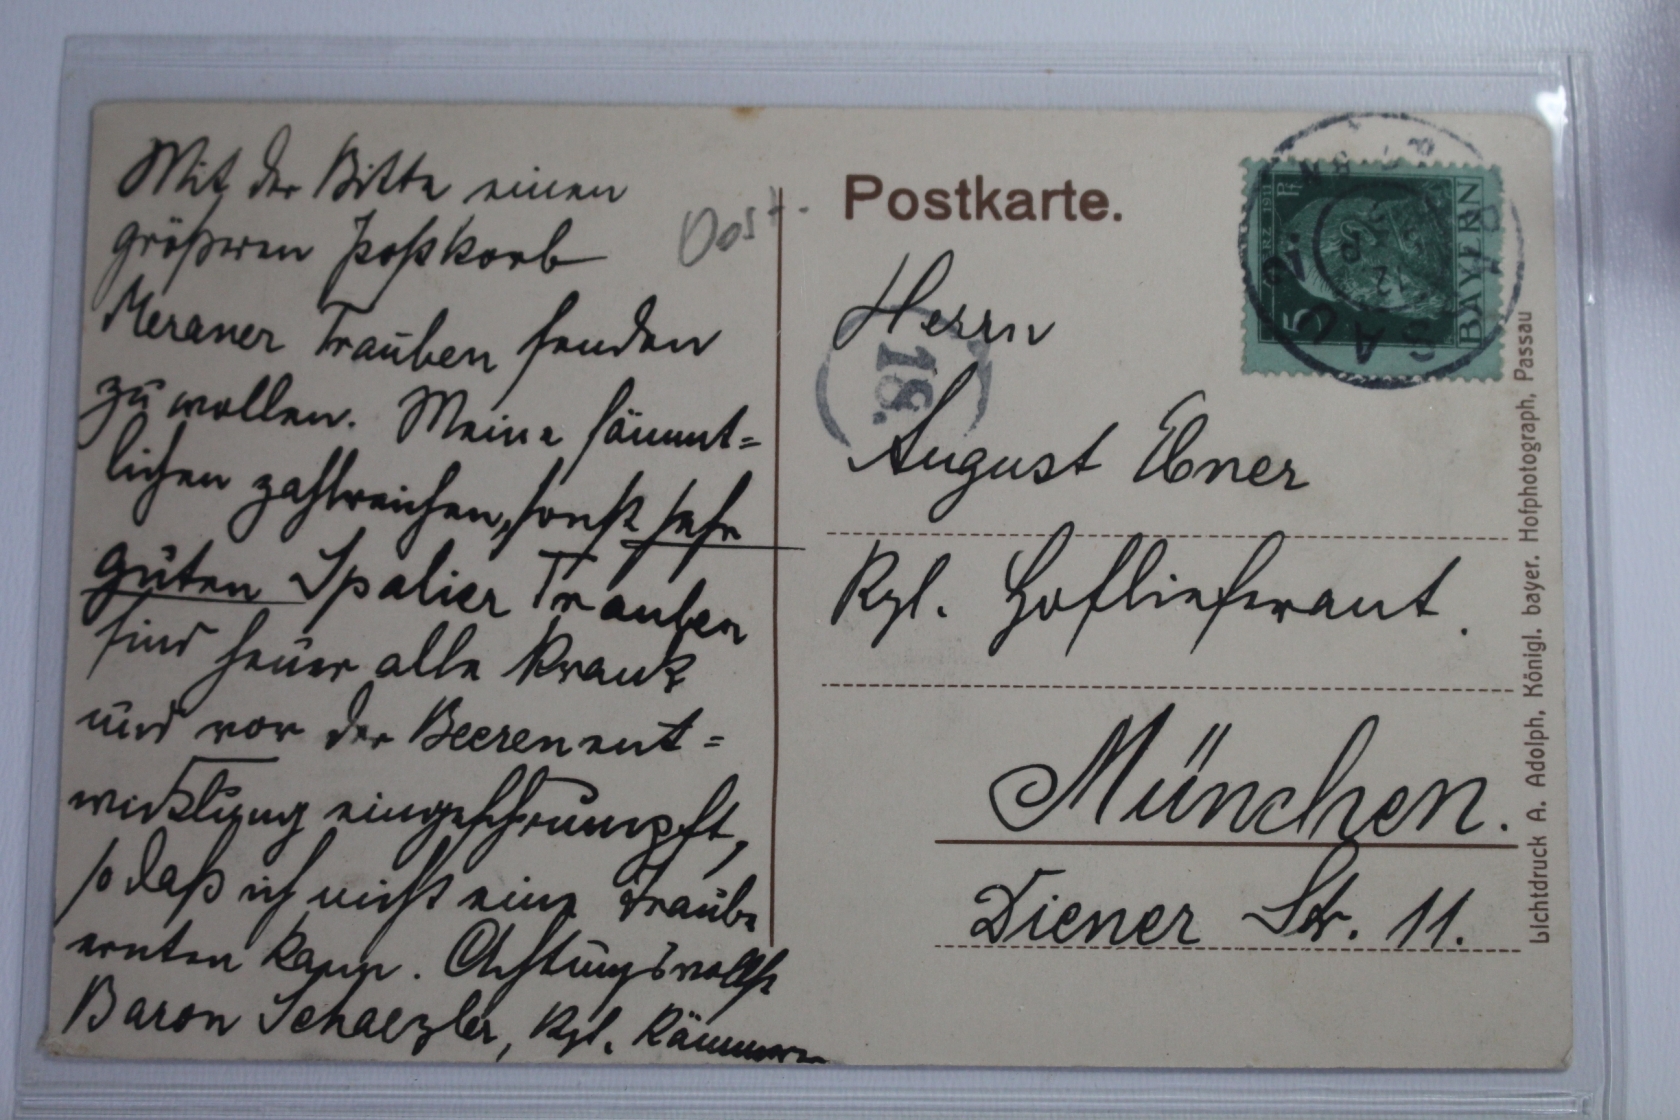 Mit der Bitte einen
größeren Postkorb
Meraner Trauben senden
zu wollen. Meine sämmt=
lichen zahlreichen, sonst sehr
guten Spalier Trauben
sind heuer alle krank
und vor der Beerenent=
wicklung eingeschrumpft,
so daß ich nicht eine Traube
ernten kann. Achtungsvollst
Baron Schaezler, Kgl. Kämmerer
Postkarte.
Herrn
18.
August Ebner
Kgl. Hoflieferant.
München.
Diener Str. 11.
BAYERN
5
1911
Lichtdruck A. Adolph, Königl. bayer. Hofphotograph, Passau